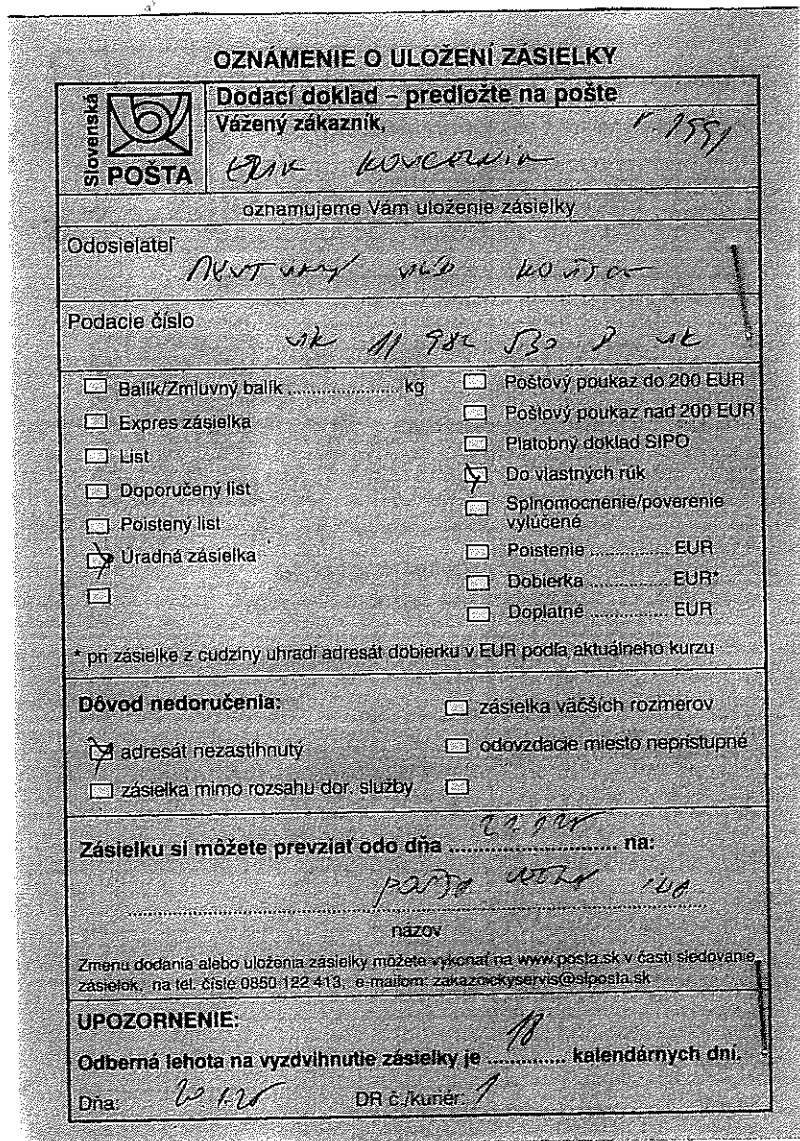 OZNÁMENIE O ULOŽENÍ ZÁSIELKY
Slovenská
POŠTA
Dodací doklad – predložte na pošte
Vážený zákazník,
r. 1991
oznamujeme Vám uloženie zásielky
Odosielateľ
Podacie číslo
11 982 530
Balík/Zmluvný balík ...................... kg
Expres zásielka
List
Doporučený list
Poistený list
Úradná zásielka
Poštový poukaz do 200 EUR
Poštový poukaz nad 200 EUR
Platobný doklad SIPO
Do vlastných rúk
Splnomocnenie/poverenie
vylúčené
Poistenie ................ EUR
Dobierka ................ EUR*
Doplatné ................ EUR
* pri zásielke z cudziny uhradí adresát dobierku v EUR podľa aktuálneho kurzu
Dôvod nedoručenia:
adresát nezastihnutý
zásielka mimo rozsahu dor. služby
zásielka väčších rozmerov
odovzdacie miesto neprístupné
Zásielku si môžete prevziať odo dňa .......................... na:
názov
Zmenu dodania alebo uloženia zásielky môžete vykonať na www.posta.sk v časti sledovanie
zásielok, na tel. čísle 0850 122 413, e-mailom: zakaznickyservis@slposta.sk
UPOZORNENIE:
Odberná lehota na vyzdvihnutie zásielky je 18 kalendárnych dní.
Dňa:
DR č./kuriér: 1